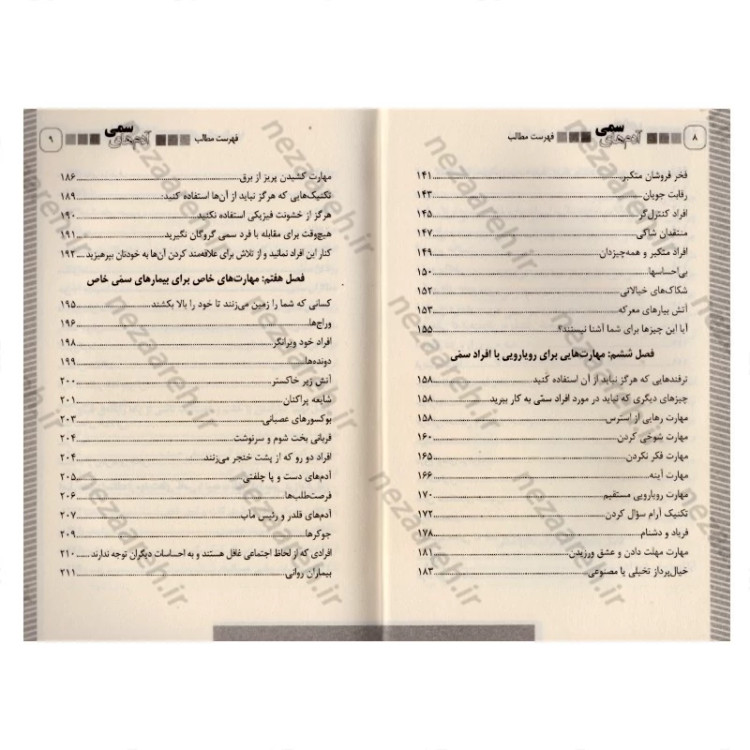 ۸ آدم‌های سمی فهرست مطالب
فخر فروشان متکبر ۱۴۱
رقابت جویان ۱۴۳
افراد کنترل‌گر ۱۴۵
منتقدان شاکی ۱۴۷
افراد متکبر و همه‌چیزدان ۱۴۹
بی‌احساسها ۱۵۰
شکاک‌های خیالاتی ۱۵۲
آتش بیارهای معرکه ۱۵۳
آیا این چیزها برای شما آشنا نیستند؟ ۱۵۵
فصل ششم: مهارت‌هایی برای رویارویی با افراد سمّی
ترفندهایی که هرگز نباید از آن استفاده کنید ۱۵۸
چیزهای دیگری که نباید در مورد افراد سمّی به کار ببرید ۱۵۸
مهارت رهایی از استرس ۱۵۸
مهارت شوخی کردن ۱۶۰
مهارت فکر نکردن ۱۶۵
مهارت آینه ۱۶۶
مهارت رویارویی مستقیم ۱۷۰
تکنیک آرام سؤال کردن ۱۷۲
فریاد و دشنام ۱۷۸
مهارت مهلت دادن و عشق ورزیدن ۱۸۱
خیال‌پرداز تخیلی یا مصنوعی ۱۸۳
فهرست مطالب آدم‌های سمی ۹
مهارت کشیدن پریز از برق ۱۸۶
تکنیک‌هایی که هرگز نباید از آن‌ها استفاده کنید: ۱۸۹
هرگز از خشونت فیزیکی استفاده نکنید ۱۹۰
هیچ‌وقت برای مقابله با فرد سمی گروگان نگیرید ۱۹۱
کنار این افراد نمانید و از تلاش برای علاقه‌مند کردن آن‌ها به خودتان بپرهیزید ۱۹۲
فصل هفتم: مهارت‌های خاص برای بیمارهای سمّی خاص
کسانی که شما را زمین می‌زنند تا خود را بالا بکشند ۱۹۵
وراج‌ها ۱۹۶
افراد خود ویرانگر ۱۹۸
دونده‌ها ۱۹۹
آتش زیر خاکستر ۲۰۰
شایعه پراکنان ۲۰۱
بوکسورهای عصبانی ۲۰۳
قربانی بخت شوم و سرنوشت ۲۰۴
افراد دو رو که از پشت خنجر می‌زنند ۲۰۴
آدم‌های دست و پا چلفتی ۲۰۵
فرصت‌طلب‌ها ۲۰۶
آدم‌های قلدر و رئیس مآب ۲۰۷
جوکرها ۲۰۹
افرادی که از لحاظ اجتماعی غافل هستند و به احساسات دیگران توجه ندارند ۲۱۰
بیماران روانی ۲۱۱
nezaareh.ir